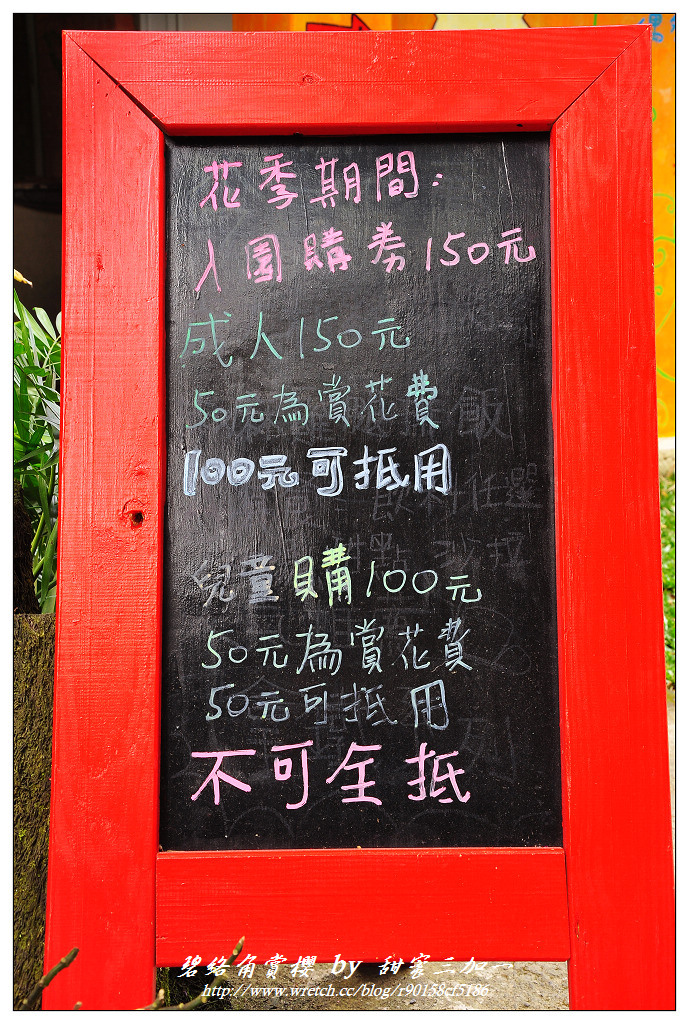 花季期間:
入園購券150元
成人150元
50元為賞花費
100元可抵用
兒童購100元
50元為賞花費
50元可抵用
不可全抵
碧絡角賞櫻 by 甜蜜三加一
http://www.wretch.cc/blog/r90158cf5186